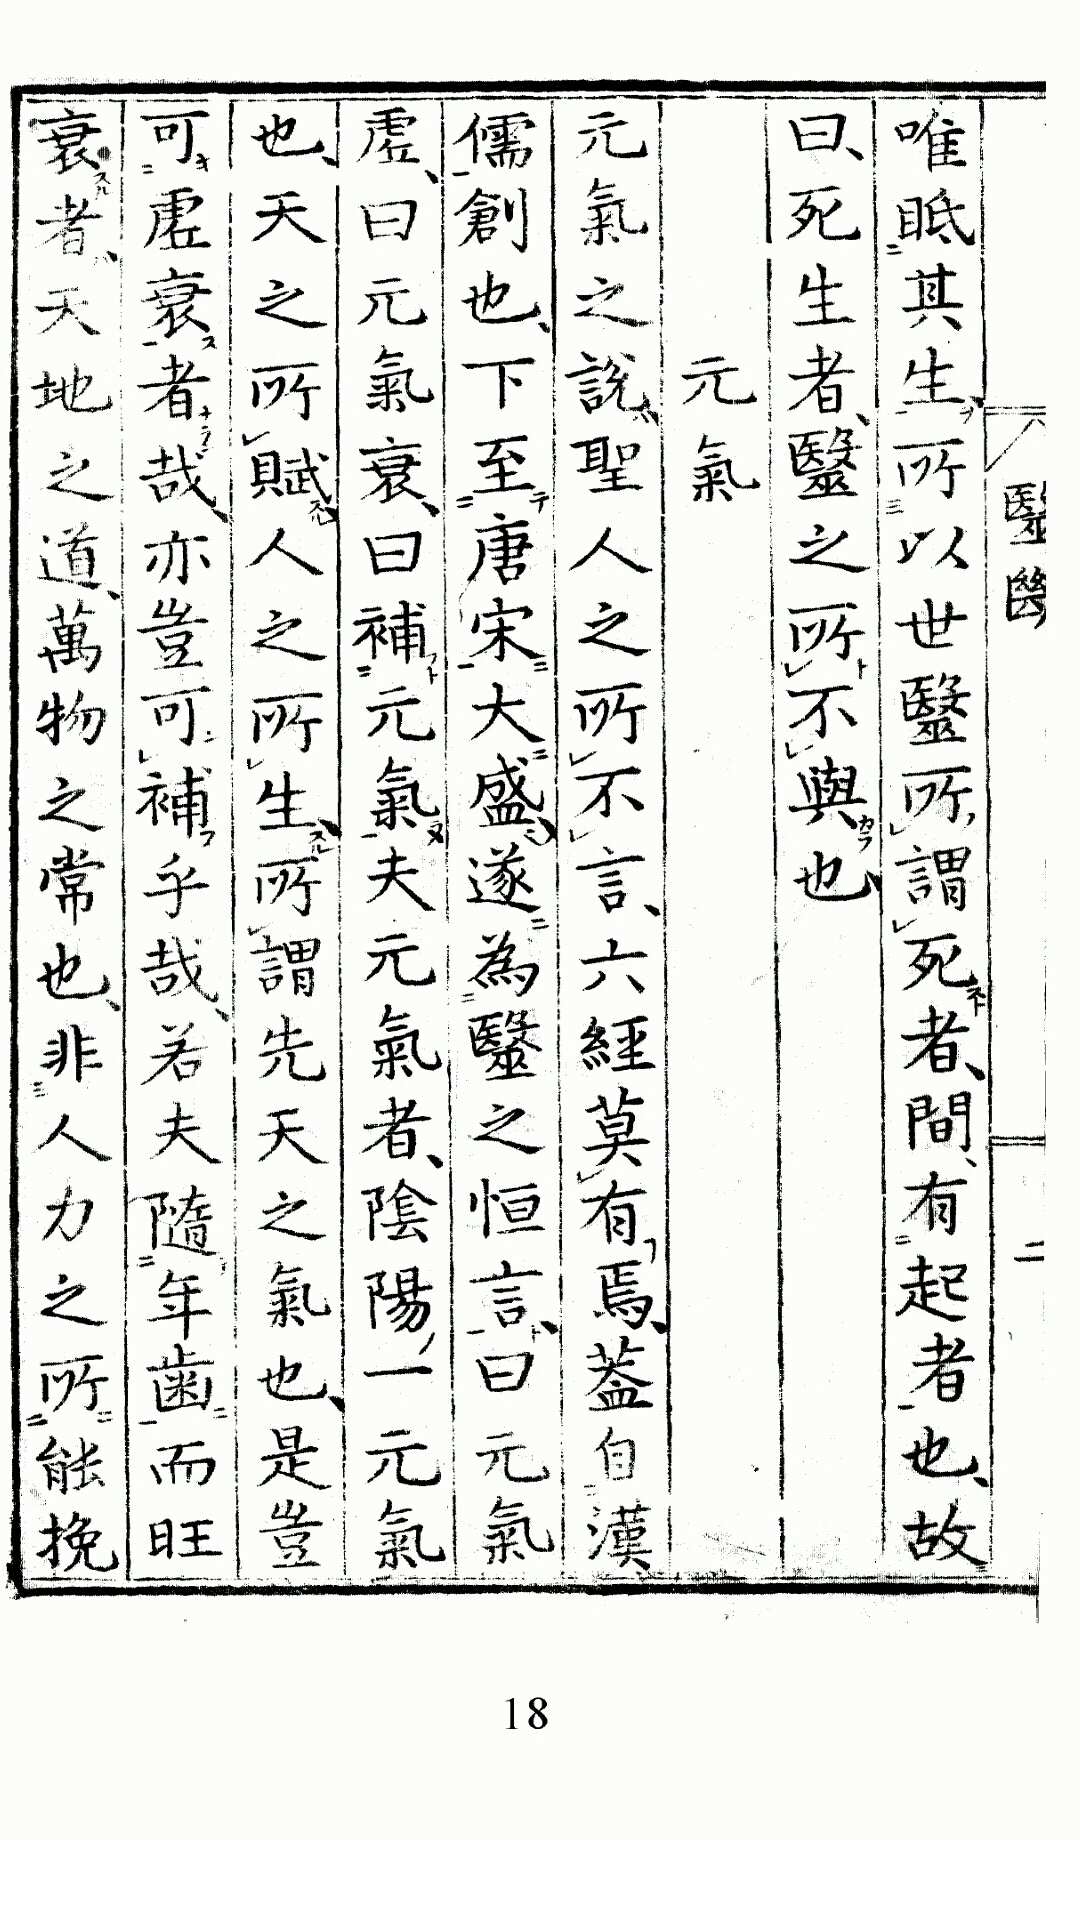 醫斷
二
唯眡其生、所以世毉所謂死者、間有起者也、故
曰、死生者、毉之所不與也
元氣
元氣之說、聖人之所不言、六經莫有焉、葢自漢
儒創也、下至唐宋大盛、遂為毉之恒言、曰元氣
虛、曰元氣衰、曰補元氣夫元氣者、陰陽一元氣
也、天之所賦人之所生、所謂先天之氣也、是豈
可虛衰者哉、亦豈可補乎哉、若夫隨年歯而旺
衰者、天地之道、萬物之常也、非人力之所能挽
18